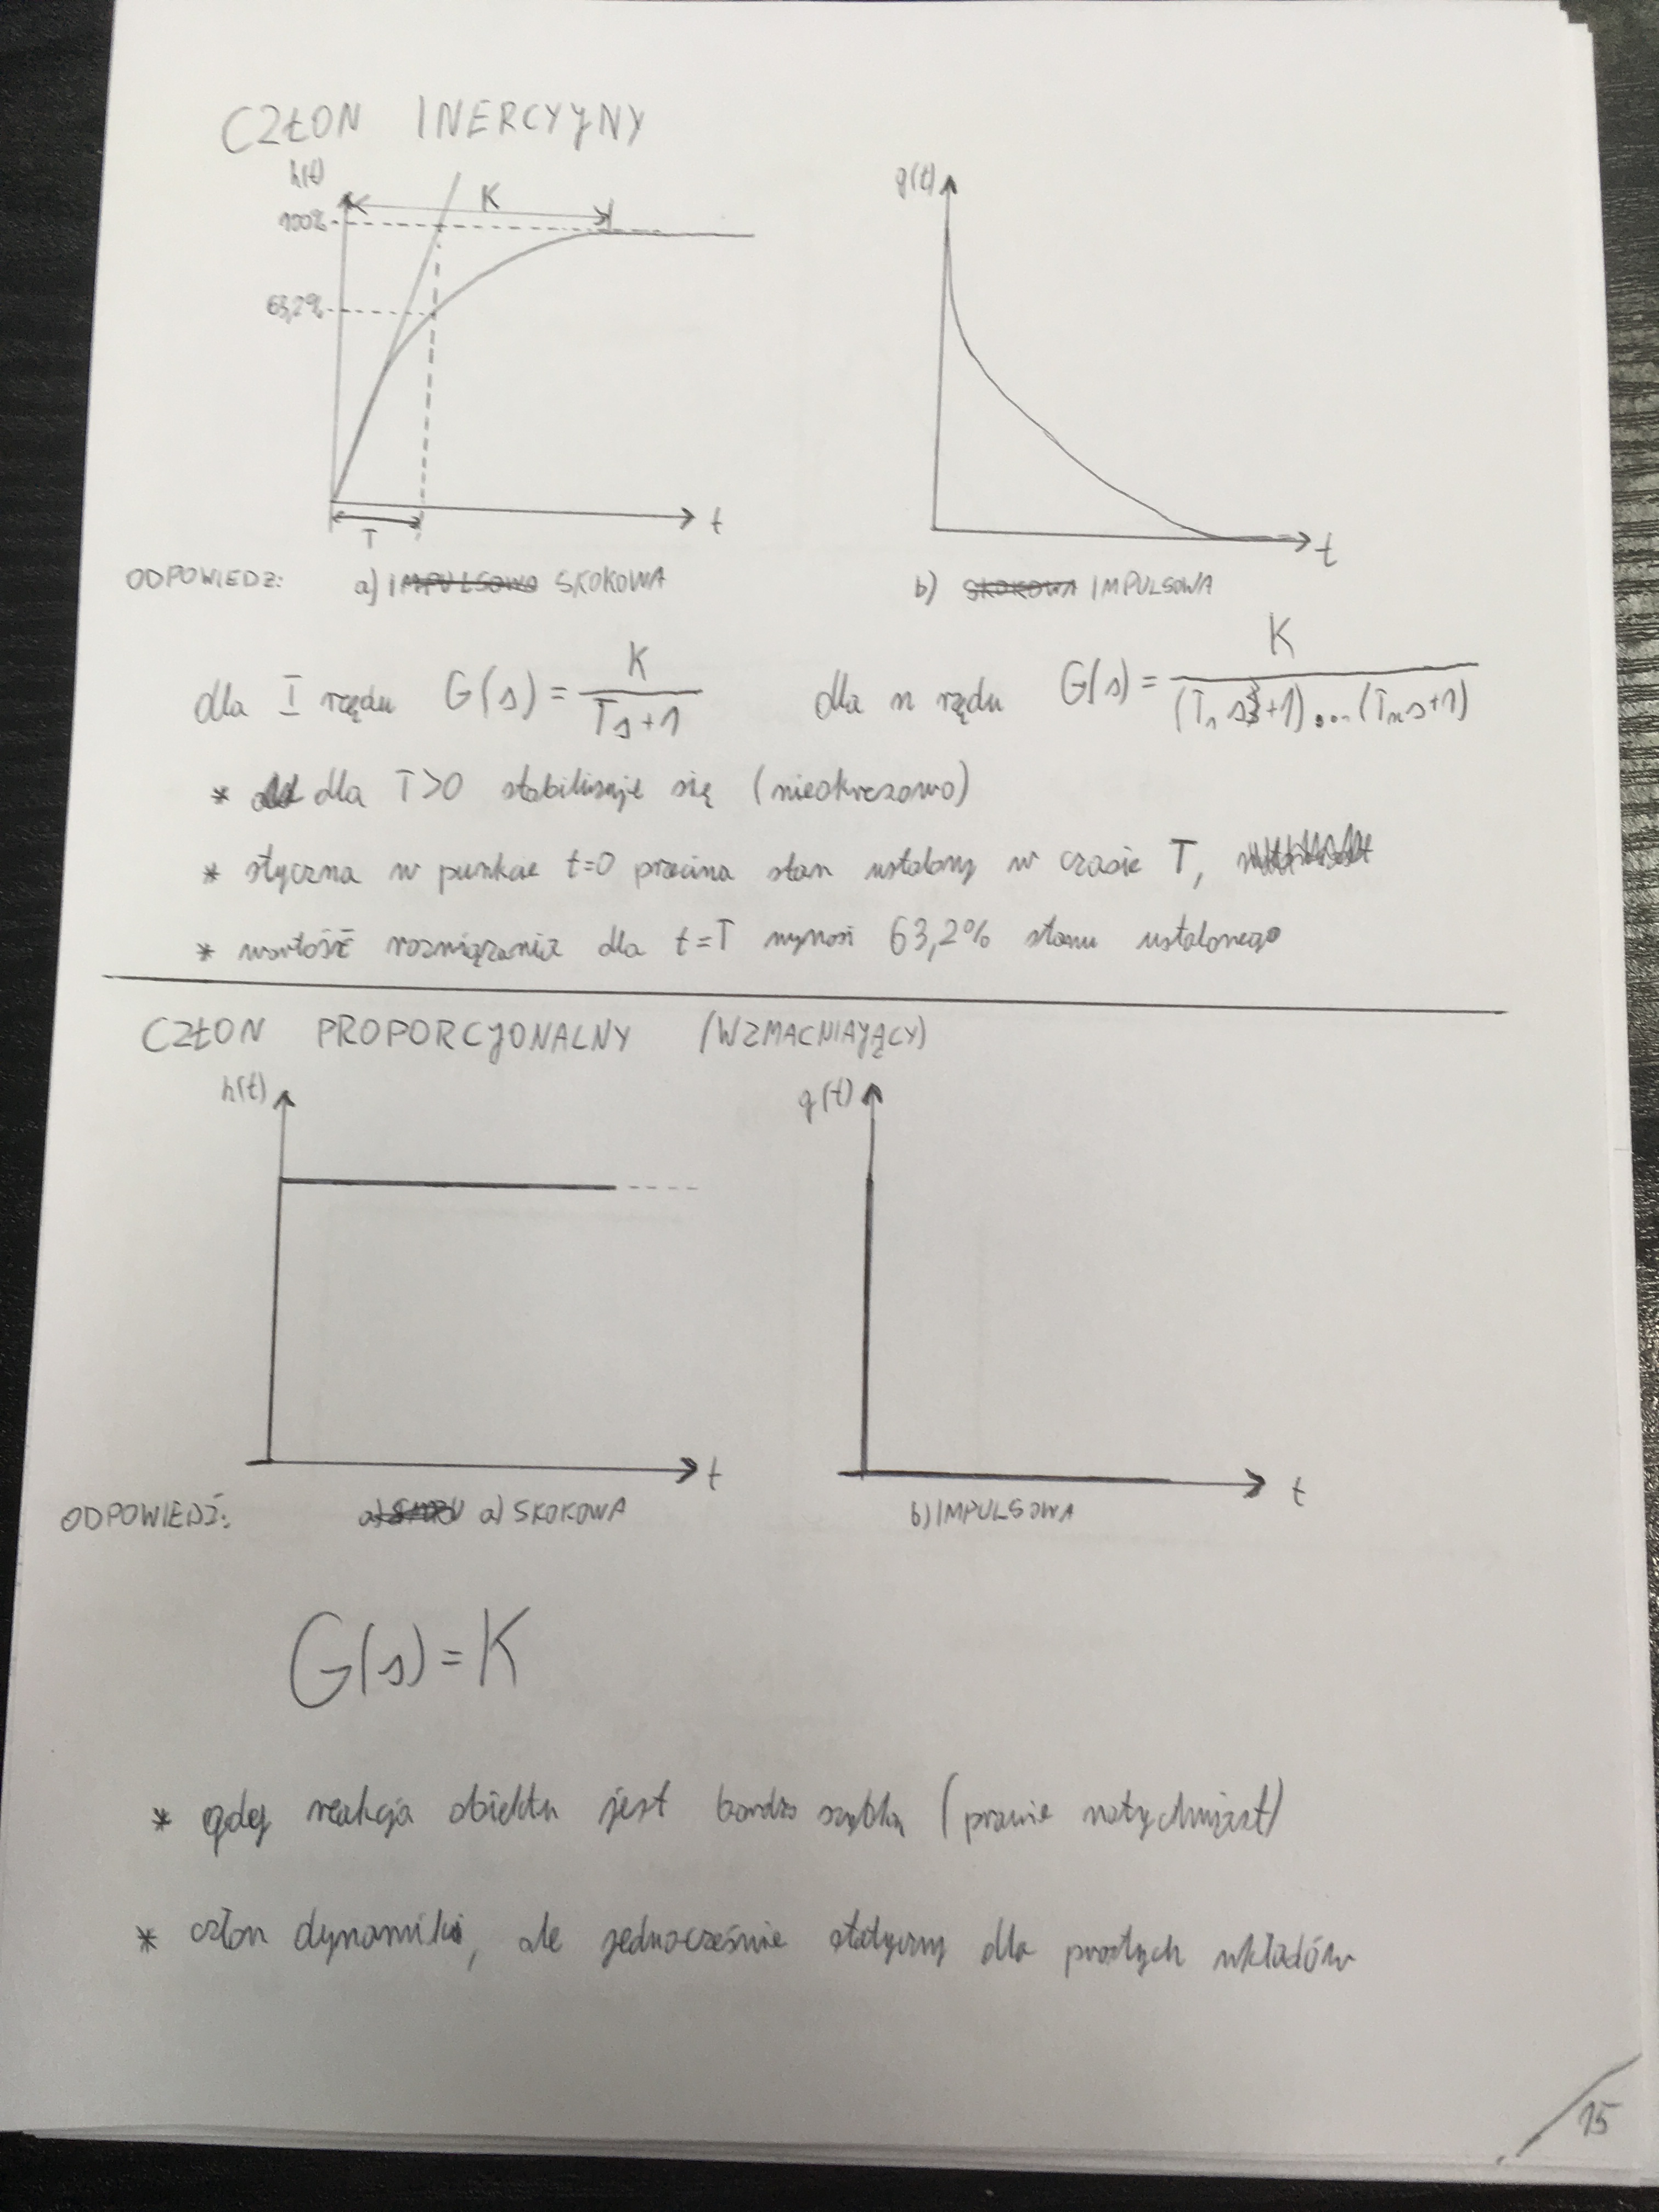 CZŁON INERCYJNY
h(t)
K
100%
63,2%
T
t
g(t)
t
ODPOWIEDZ: a) IMPULSOWO SKOKOWA b) SKOKOWA IMPULSOWA
dla I rzędu G(s) = K / (Ts+1) dla n rzędu G(s) = K / ((T₁s+1)...(Tₙs+1))
* dla T>0 stabilizuje się (nieokresowo)
* styczna w punkcie t=0 przecina stan ustalony w czasie T,
* wartość rozwiązania dla t=T wynosi 63,2% stanu ustalonego
CZŁON PROPORCJONALNY (WZMACNIAJĄCY)
h(t)
t
g(t)
t
ODPOWIEDŹ: a) SKOKOWA b) IMPULSOWA
G(s)=K
* gdy reakcja obiektu jest bardzo szybka (prawie natychmiast)
* człon dynamiki, ale jednocześnie statyczny dla prostych układów
15